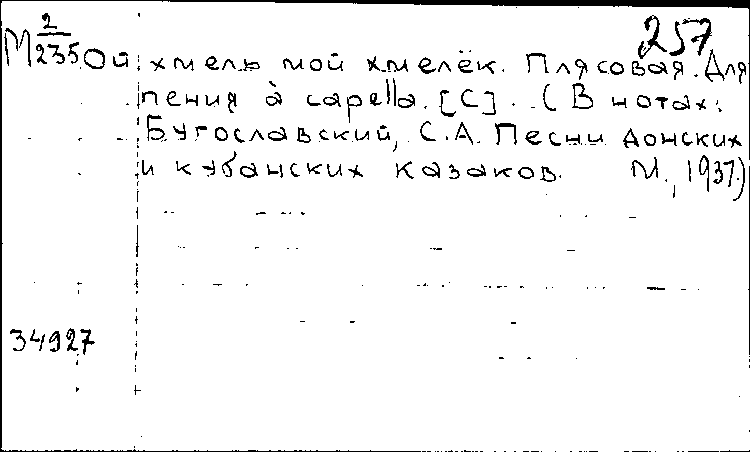 257
М 2/235 Ой хмель мой хмелёк. Плясовая. Для
пения à capella. [С]. (В нотах:
Бугославский, С.А. Песни донских
и кубанских казаков. М., 1937.)
34927